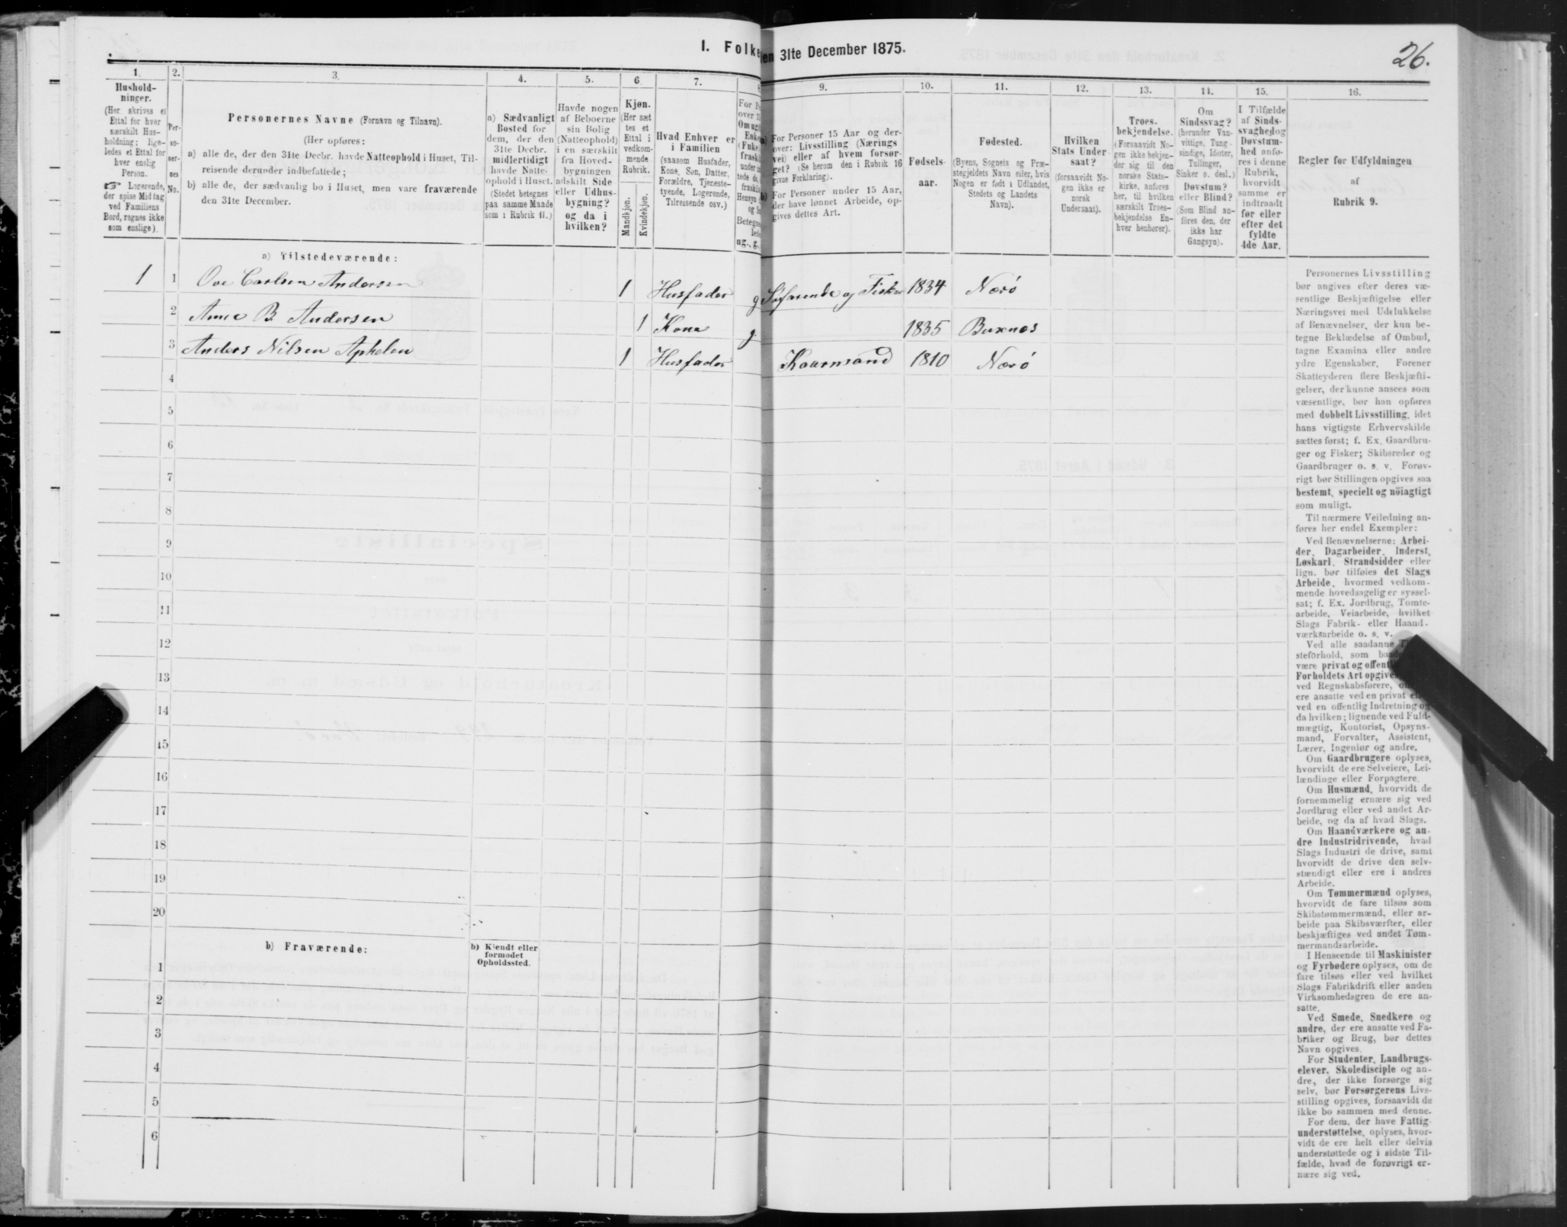 I. Folke
en 31te December 1875.
26.
1.
Hushold-
ninger.
(Her skrives et
Ettal for hver
særskilt Hus-
holdning; lige-
ledes et Ettal for
hver enslig
Person.
☞ Logerende,
der spise Middag
ved Familiens
Bord, regnes ikke
som enslige).
2.
Per-
so-
ner-
nes
No.
3.
Personernes Navne (Fornavn og Tilnavn).
(Her opføres:
a) alle de, der den 31te Decbr. havde Natteophold i Huset, Til-
reisende derunder indbefattede;
b) alle de, der sædvanlig bo i Huset, men vare fraværende
den 31te December.
4.
a) Sædvanligt
Bosted for
dem, der den
31te Decbr.
midlertidigt
havde Natte-
ophold i Huset.
(Stedet betegnes
paa samme Maade
som i Rubrik 11.)
5.
Havde nogen
af Beboerne
sin Bolig
(Natteophold)
i en særskilt
fra Hoved-
bygningen
adskilt Side
eller Udhus-
bygning?
og da i
hvilken?
6
Kjøn.
(Her sæt
tes et
Ettal i
vedkom-
mende
Rubrik.
Mandkjøn.
Kvindekjøn.
7.
Hvad Enhver er
i Familien
(saasom Husfader,
Kone, Søn, Datter,
Forældre, Tjeneste-
tyende, Logerende,
Tilreisende osv.)
9.
For Personer 15 Aar og der-
over: Livsstilling (Nærings
vei) eller af hvem forsør-
get? (Se herom den i Rubrik 16
givne Forklaring).
For Personer under 15 Aar,
der have lønnet Arbeide, op-
gives dettes Art.
10.
Fødsels-
aar.
11.
Fødested.
(Byens, Sognets og Præ-
stegjeldets Navn eller, hvis
Nogen er født i Udlandet,
Stedets og Landets
Navn).
12.
Hvilken
Stats Under
saat?
(forsaavidt No-
gen ikke er
norsk
Undersaat).
13.
Troes-
bekjendelse.
(Forsaavidt No-
gen ikke bekjen-
der sig til den
norske Stats-
kirke, anføres
her, til hvilken
særskilt Troes-
bekjendelse En-
hver henhører).
14.
Om
Sindssvag?
(herunder Van-
vittige, Tung-
sindige, Idioter,
Tullinger,
Sinker o. desl.)
Døvstum?
eller Blind?
(Som Blind an-
føres den, der
ikke har
Gangsyn).
15.
I Tilfælde
af Sinds-
svaghed og
Døvstum-
hed anfø-
res i denne
Rubrik,
hvorvidt
samme er
indtraadt
før eller
efter det
fyldte
4de Aar.
16.
Regler for Udfyldningen
af
Rubrik 9.
a) Tilstedeværende:
1 1 Ove Carlsen Andersen 1 Husfader g Søfarende og Fisker 1834 Nærø
2 Anne B. Andersen 1 Kone g 1835 Buxnæs
3 Anders Nilsen Aphelen 1 Husfader Kaarmand 1810 Nærø
4
5
6
7
8
9
10
11
12
13
14
15
16
17
18
19
20
b) Fraværende:
b) Kjendt eller
formodet
Opholdssted.
1
2
3
4
5
6
Personernes Livsstilling
bør angives efter deres væ-
sentlige Beskjæftigelse eller
Næringsvei med Udelukkelse
af Benævnelser, der kun be-
tegne Beklædelse af Ombud,
tagne Examina eller andre
ydre Egenskaber. Forener
Skatteyderen flere Beskjæfti-
gelser, der kunne ansees som
væsentlige, bør han opføres
med dobbelt Livsstilling, idet
hans vigtigste Erhvervskilde
sættes først; f. Ex. Gaardbru-
ger og Fisker; Skibsreder og
Gaardbruger o. s. v. Forøv-
rigt bør Stillingen opgives saa
bestemt, specielt og nöiagtigt
som muligt.
Til nærmere Veiledning an-
føres her endel Exempler:
Ved Benævnelserne: Arbei-
der, Dagarbeider, Inderst,
Løskarl, Strandsidder eller
lign. bør tilføies det Slags
Arbeide, hvormed vedkom-
mende hovedsagelig er syssel-
sat; f. Ex. Jordbrug, Tomte-
arbeide, Veiarbeide, hvilket
Slags Fabrik- eller Haand-
værksarbeide o. s. v.
Ved alle saadanne
steforhold, som
være privat og
Forholdets Art
ved Regnskabsførere,
ere ansatte ved en privat
ved en offentlig Indretning og
da hvilken; lignende ved Fuld-
mægtig, Kontorist, Opsyns-
mand, Forvalter, Assistent,
Lærer, Ingeniør og andre.
Om Gaardbrugere oplyses,
hvorvidt de ere Selveiere, Lei-
lændinge eller Forpagtere.
Om Husmænd, hvorvidt de
fornemmelig ernære sig ved
Jordbrug eller ved andet Ar-
beide, og da af hvad Slags.
Om Haandværkere og an-
dre Industridrivende, hvad
Slags Industri de drive, samt
hvorvidt de drive den selv-
stændigt eller ere i andres
Arbeide.
Om Tømmermænd oplyses,
hvorvidt de fare tilsøs som
Skibstømmermænd, eller ar-
beide paa Skibsværfter, eller
beskjæftiges ved andet Tøm-
mermandsarbeide.
I Henseende til Maskinister
og Fyrbødere oplyses, om de
fare tilsøs eller ved hvilket
Slags Fabrikdrift eller anden
Virksomhedsgren de ere an-
satte.
Ved Smede, Snedkere og
andre, der ere ansatte ved Fa-
briker og Brug, bør dettes
Navn opgives.
For Studenter, Landbrugs-
elever, Skoledisciple og an-
dre, der ikke forsørge sig
selv, bør Forsørgerens Livs-
stilling opgives, forsaavidt de
ikke bo sammen med denne.
For dem, der have Fattig-
understøttelse, oplyses, hvor-
vidt de ere helt eller delvis
understøttede og i sidste Til-
fælde, hvad de forøvrigt er-
nære sig ved.